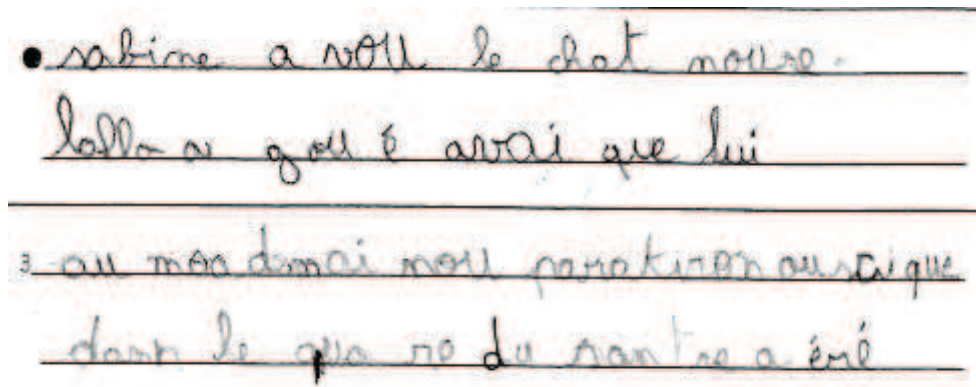 • sabine a voU le chat noure.
lolla a gou é avai que lui
3. au moa dmai nou paratiron au sai que
dans le qua re du santre a éré